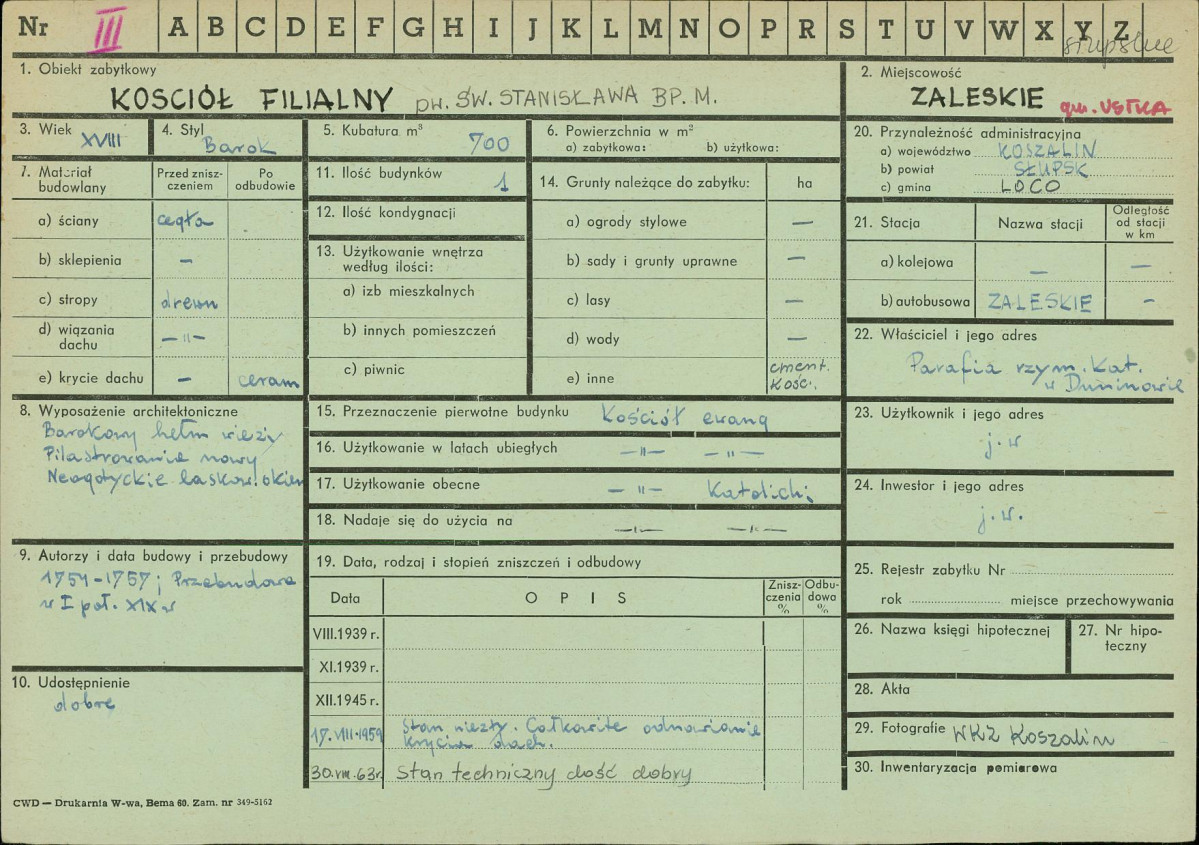 Nr III A B C D E F G H I J K L M N O P R S T U V W X Y Z
słupskie
1. Obiekt zabytkowy
KOSCIÓŁ FILIALNY pw. ŚW. STANISŁAWA BP. M.
2. Miejscowość
ZALESKIE gm. USTKA
3. Wiek XVIII
4. Styl Barok
5. Kubatura m³ 700
6. Powierzchnia w m²
a) zabytkowa: b) użytkowa:
7. Materiał budowlany
Przed zniszczeniem
Po odbudowie
a) ściany cegła
b) sklepienia –
c) stropy drewn
d) wiązania dachu –"–
e) krycie dachu – ceram
8. Wyposażenie architektoniczne
Barokowy hełm wieży
Pilastrowanie nowy
Neogotyckie laskow. okien
9. Autorzy i data budowy i przebudowy
1754-1757; Przebudowa
w I poł. XIX w
10. Udostępnienie
dobre
11. Ilość budynków 1
12. Ilość kondygnacji
13. Użytkowanie wnętrza według ilości:
a) izb mieszkalnych
b) innych pomieszczeń
c) piwnic
14. Grunty należące do zabytku: ha
a) ogrody stylowe –
b) sady i grunty uprawne –
c) lasy –
d) wody –
e) inne cment. Kość.
15. Przeznaczenie pierwotne budynku Kościół ewang
16. Użytkowanie w latach ubiegłych –"– –"–
17. Użytkowanie obecne –"– Katolicki
18. Nadaje się do użycia na –"– –"–
19. Data, rodzaj i stopień zniszczeń i odbudowy
Data
O P I S
Zniszczenia %
Odbudowa %
VIII.1939 r.
XI.1939 r.
XII.1945 r.
17.VIII.1959 Stan niezły. Całkowite odnowienie
krycia dach.
30.VIII.63r. Stan techniczny dość dobry
20. Przynależność administracyjna
a) województwo KOSZALIN
b) powiat SŁUPSK
c) gmina LOCO
21. Stacja
Nazwa stacji
Odległość od stacji w km
a) kolejowa – –
b) autobusowa ZALESKIE –
22. Właściciel i jego adres
Parafia rzym. Kat.
w Duninowie
23. Użytkownik i jego adres
j. w
24. Inwestor i jego adres
j. w.
25. Rejestr zabytku Nr
rok miejsce przechowywania
26. Nazwa księgi hipotecznej
27. Nr hipoteczny
28. Akta
29. Fotografie WKZ Koszalin
30. Inwentaryzacja pomiarowa
CWD — Drukarnia W-wa, Bema 60. Zam. nr 349-5162